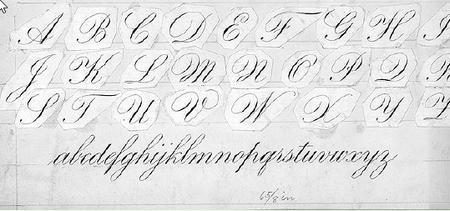 A B C D E F G H I
J K L M N O P Q R
S T U V W X Y Z
abcdefghijklmnopqrsstuvwxyz
6 5/8 in